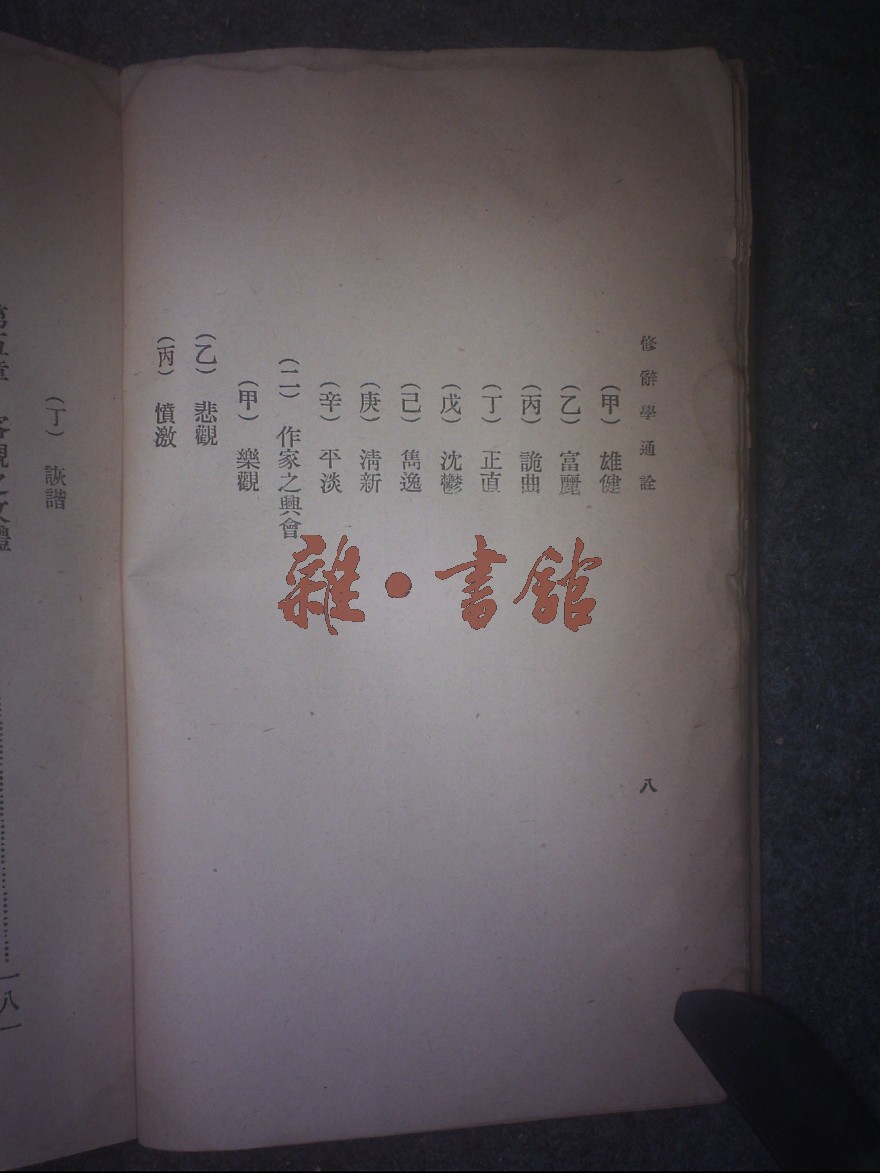 修辭學通詮
八
（甲）　雄健
（乙）　富麗
（丙）　詭曲
（丁）　正直
（戊）　沈鬱
（己）　雋逸
（庚）　清新
（辛）　平淡
（二）　作家之興會
（甲）　樂觀
（乙）　悲觀
（丙）　憤激
（丁）　詼諧
第五章　客觀之文體……一八一
雜・書館